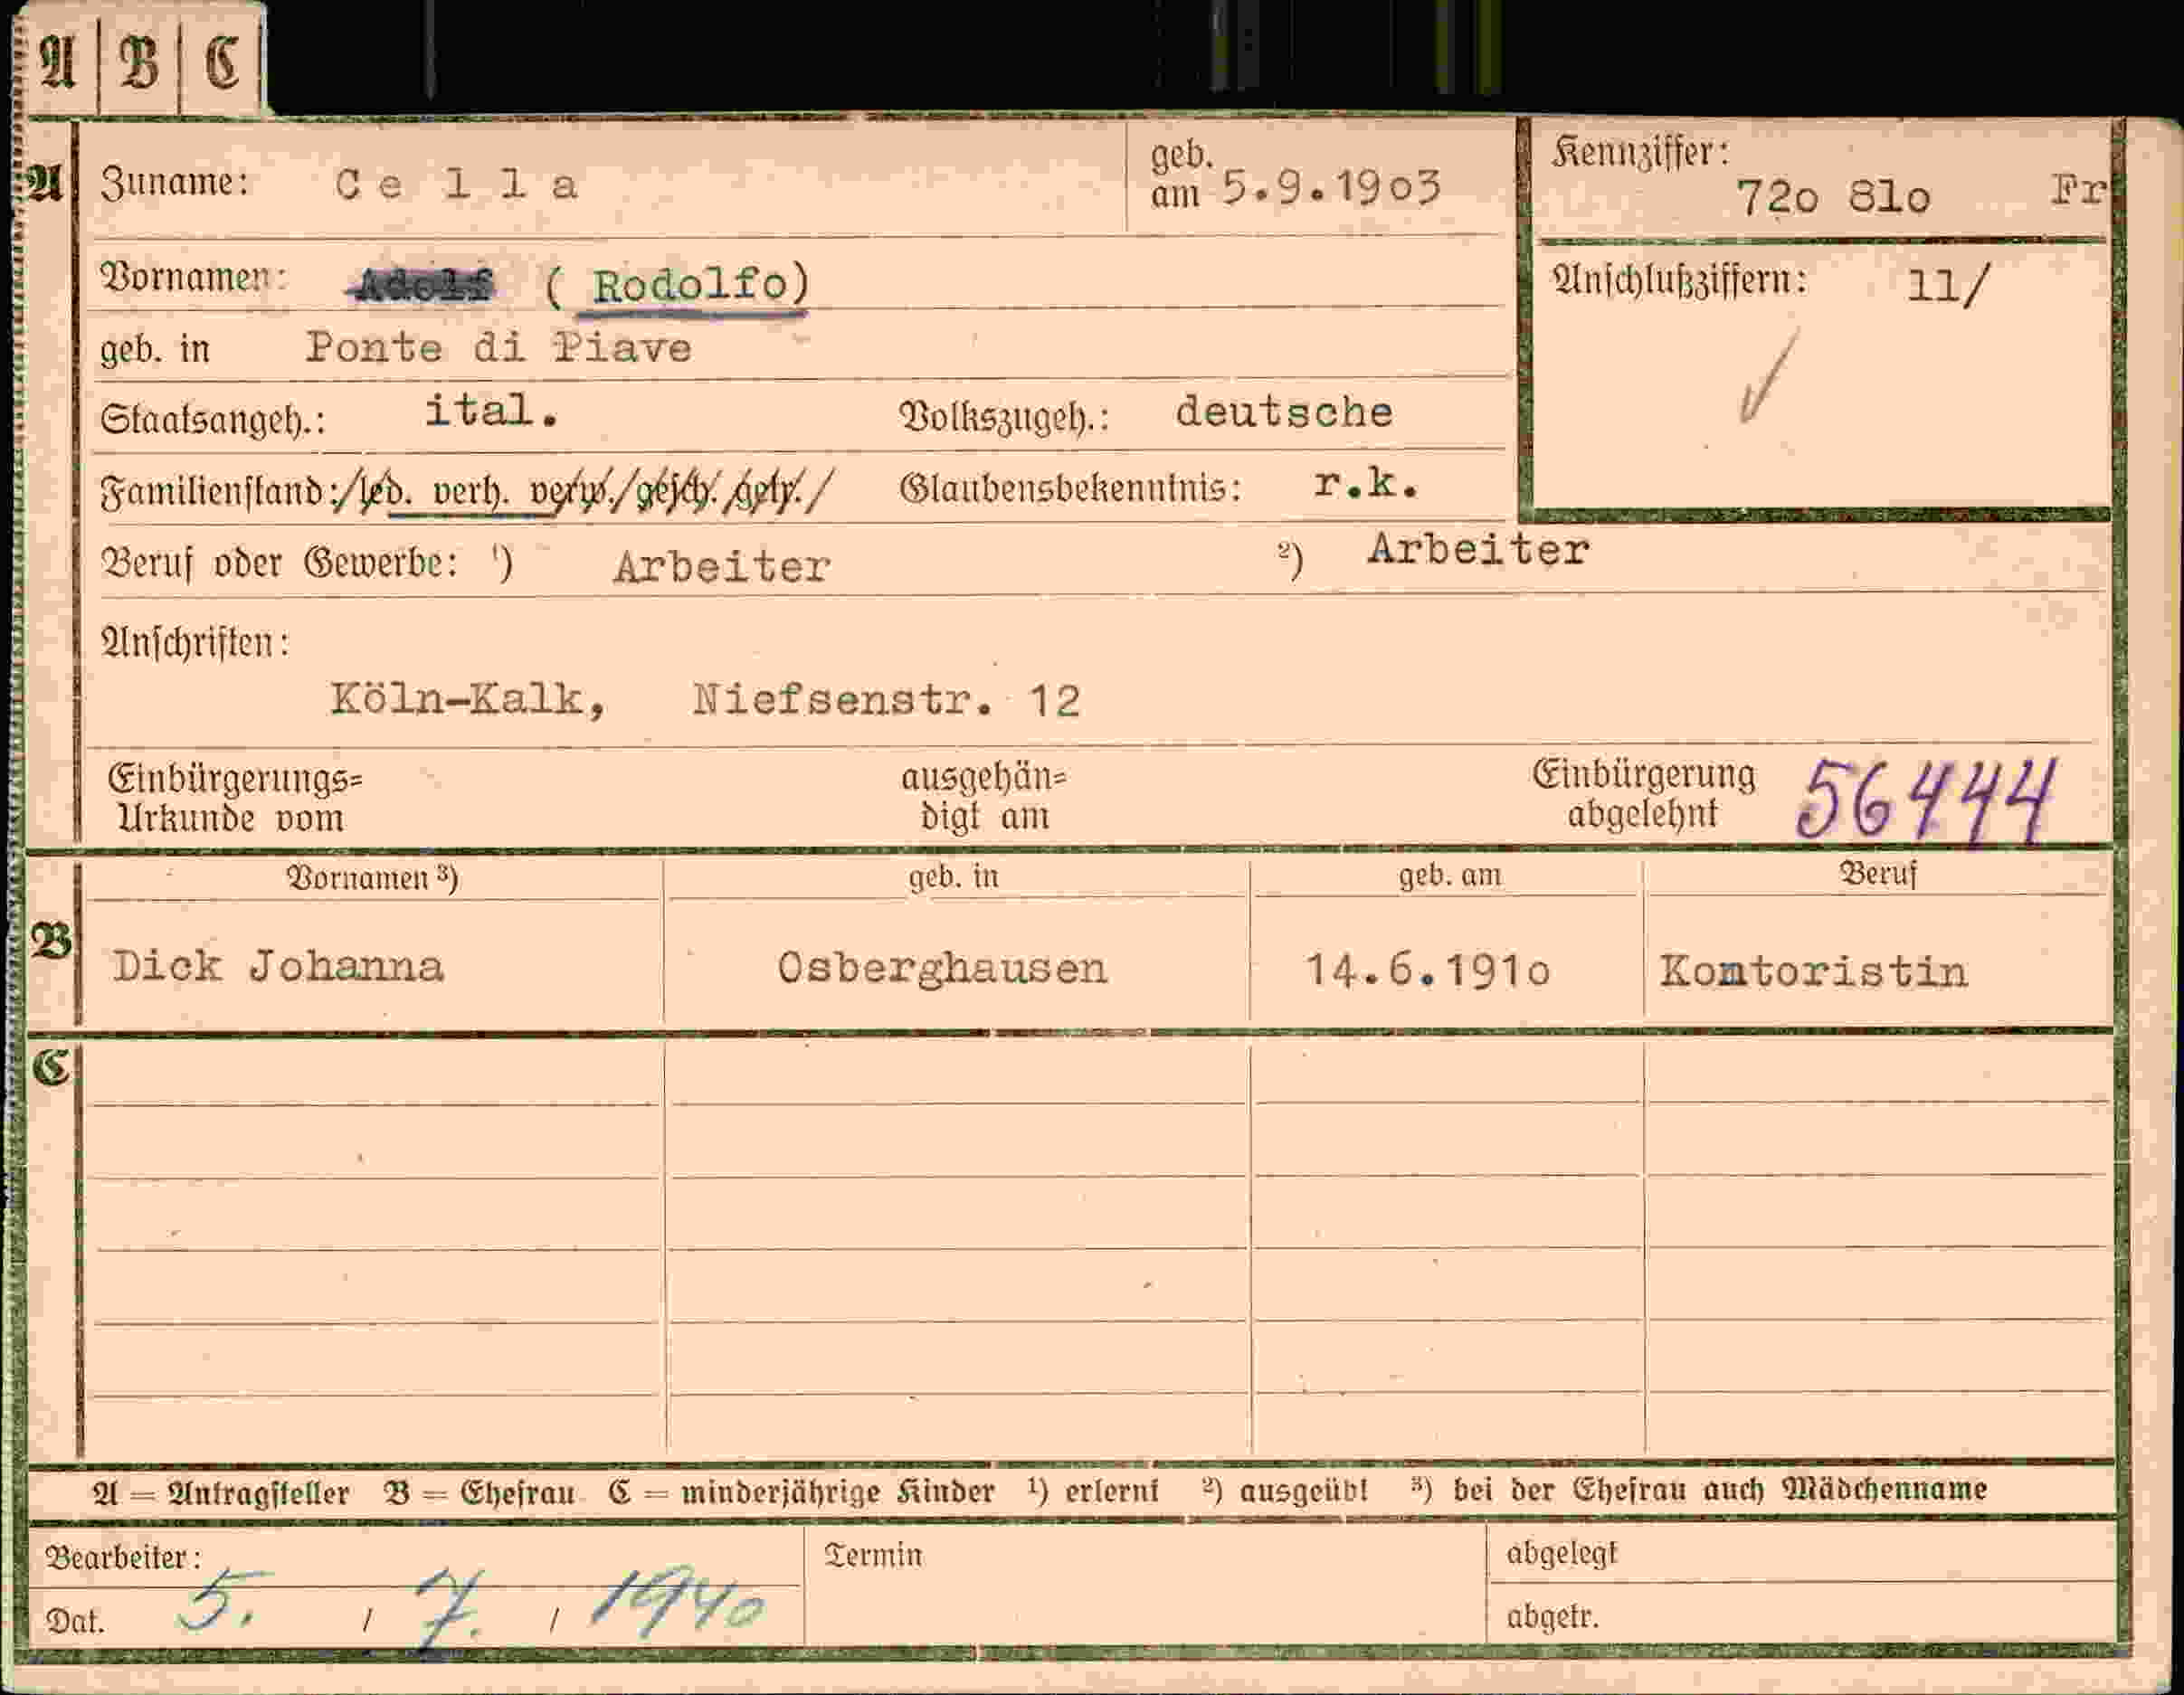 A | B | C
A Zuname: Cella geb. am 5.9.1903 Kennziffer: 72o 81o Fr
Vornamen: Adolf (Rodolfo) Anschlußziffern: 11/
geb. in Ponte di Piave
Staatsangeh.: ital. Volkszugeh.: deutsche
Familienstand: led. verh. verw. gesch. getr. Glaubensbekenntnis: r.k.
Beruf oder Gewerbe: 1) Arbeiter 2) Arbeiter
Anschriften:
Köln-Kalk, Niefsenstr. 12
Einbürgerungs= ausgehän= Einbürgerung 56444
Urkunde vom digt am abgelehnt
Vornamen 3) geb. in geb. am Beruf
B Dick Johanna Osberghausen 14.6.191o Kontoristin
C
A = Antragsteller B = Ehefrau C = minderjährige Kinder 1) erlernt 2) ausgeübt 3) bei der Ehefrau auch Mädchenname
Bearbeiter: Termin abgelegt
Dat. 5. / 7. / 1940 abgetr.